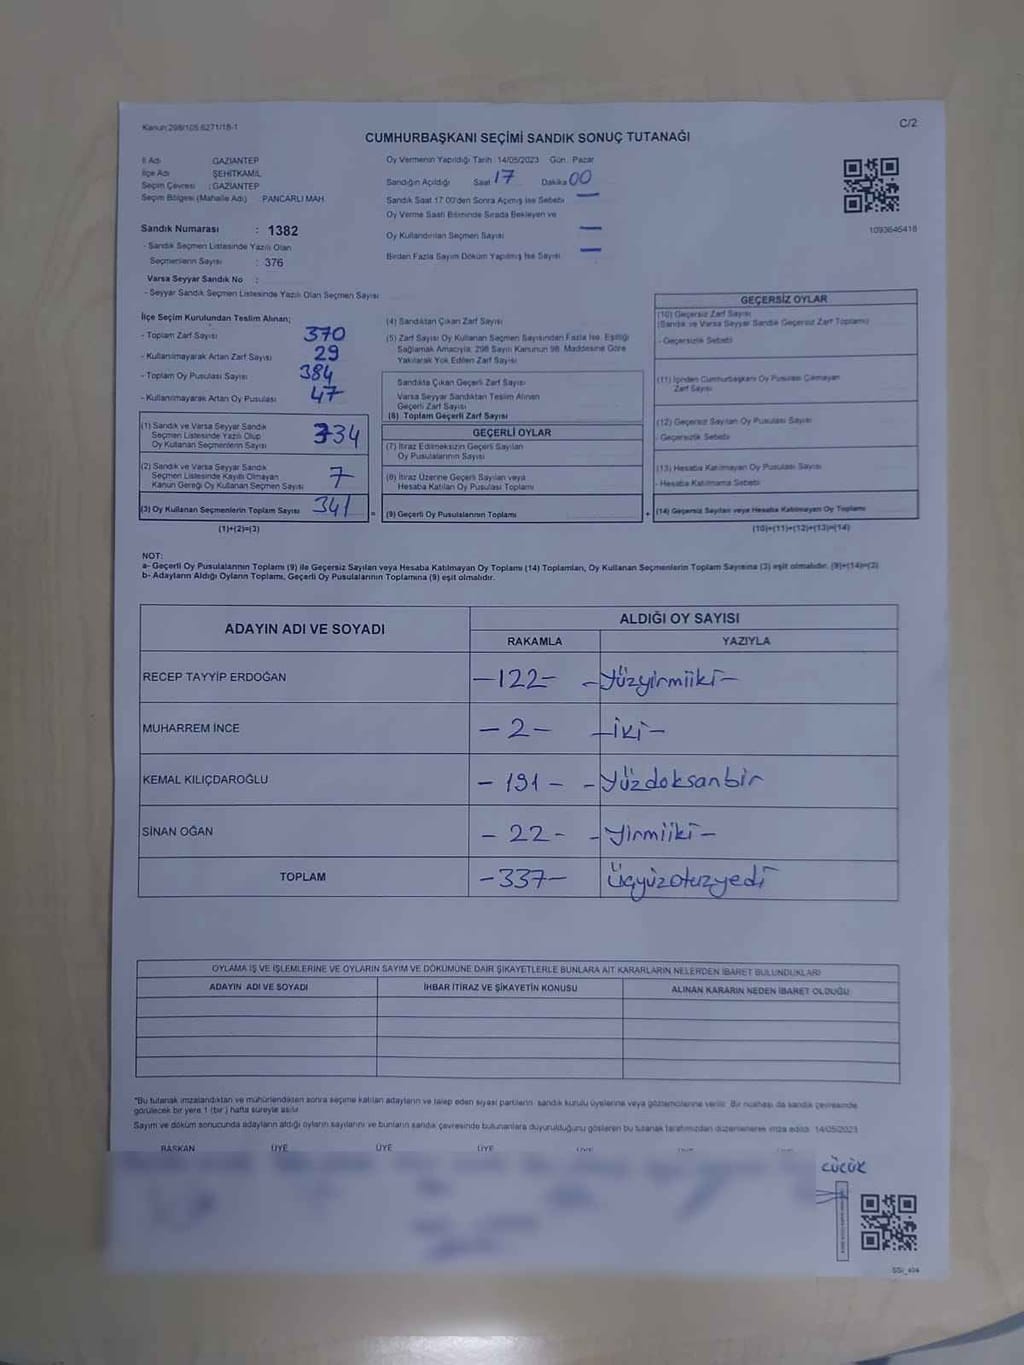 Kanun:298/105.6271/18-1
C/2
CUMHURBAŞKANI SEÇİMİ SANDIK SONUÇ TUTANAĞI
İl Adı GAZİANTEP
İlçe Adı ŞEHİTKAMİL
Seçim Çevresi : GAZİANTEP
Seçim Bölgesi (Mahalle Adı) PANCARLI MAH.
Oy Vermenin Yapıldığı Tarih 14/05/2023 Gün Pazar
Sandığın Açıldığı Saat 17 Dakika 00
Sandık Saat 17:00'den Sonra Açılmış İse Sebebi —
Oy Verme Saati Bitiminde Sırada Bekleyen ve
Oy Kullandırılan Seçmen Sayısı —
Birden Fazla Sayım Döküm Yapılmış İse Sayısı —
1093645418
Sandık Numarası : 1382
- Sandık Seçmen Listesinde Yazılı Olan
Seçmenlerin Sayısı : 376
Varsa Seyyar Sandık No :
- Seyyar Sandık Seçmen Listesinde Yazılı Olan Seçmen Sayısı
İlçe Seçim Kurulundan Teslim Alınan;
- Toplam Zarf Sayısı 370
- Kullanılmayarak Artan Zarf Sayısı 29
- Toplam Oy Pusulası Sayısı 384
- Kullanılmayarak Artan Oy Pusulası 47
(1) Sandık ve Varsa Seyyar Sandık
Seçmen Listesinde Yazılı Olup
Oy Kullanan Seçmenlerin Sayısı 334
(2) Sandık ve Varsa Seyyar Sandık
Seçmen Listesinde Kayıtlı Olmayan
Kanun Gereği Oy Kullanan Seçmen Sayısı 7
(3) Oy Kullanan Seçmenlerin Toplam Sayısı 341
(1)+(2)=(3)
(4) Sandıktan Çıkan Zarf Sayısı
(5) Zarf Sayısı Oy Kullanan Seçmen Sayısından Fazla İse, Eşitliği
Sağlamak Amacıyla, 298 Sayılı Kanunun 98. Maddesine Göre
Yakılarak Yok Edilen Zarf Sayısı
Sandıkta Çıkan Geçerli Zarf Sayısı
Varsa Seyyar Sandıktan Teslim Alınan
Geçerli Zarf Sayısı
(6) Toplam Geçerli Zarf Sayısı
GEÇERLİ OYLAR
(7) İtiraz Edilmeksizin Geçerli Sayılan
Oy Pusulalarının Sayısı
(8) İtiraz Üzerine Geçerli Sayılan veya
Hesaba Katılan Oy Pusulası Toplamı
= (9) Geçerli Oy Pusulalarının Toplamı
GEÇERSİZ OYLAR
(10) Geçersiz Zarf Sayısı
(Sandık ve Varsa Seyyar Sandık Geçersiz Zarf Toplamı)
- Geçersizlik Sebebi
(11) İçinden Cumhurbaşkanı Oy Pusulası Çıkmayan
Zarf Sayısı
(12) Geçersiz Sayılan Oy Pusulası Sayısı
- Geçersizlik Sebebi
(13) Hesaba Katılmayan Oy Pusulası Sayısı
- Hesaba Katılmama Sebebi
+ (14) Geçersiz Sayılan veya Hesaba Katılmayan Oy Toplamı
(10)+(11)+(12)+(13)=(14)
NOT:
a- Geçerli Oy Pusulalarının Toplamı (9) ile Geçersiz Sayılan veya Hesaba Katılmayan Oy Toplamı (14) Toplamları, Oy Kullanan Seçmenlerin Toplam Sayısına (3) eşit olmalıdır. (9)+(14)=(3)
b- Adayların Aldığı Oyların Toplamı, Geçerli Oy Pusulalarının Toplamına (9) eşit olmalıdır.
ADAYIN ADI VE SOYADI
ALDIĞI OY SAYISI
RAKAMLA YAZIYLA
RECEP TAYYİP ERDOĞAN -122- -yüzyirmiiki-
MUHARREM İNCE -2- -iki-
KEMAL KILIÇDAROĞLU -191- -yüzdoksanbir
SİNAN OĞAN -22- -yirmiiki-
TOPLAM -337- üçyüzotuzyedi
OYLAMA İŞ VE İŞLEMLERİNE VE OYLARIN SAYIM VE DÖKÜMÜNE DAİR ŞİKAYETLERLE BUNLARA AİT KARARLARIN NELERDEN İBARET BULUNDUKLARI
ADAYIN ADI VE SOYADI İHBAR İTİRAZ VE ŞİKAYETİN KONUSU ALINAN KARARIN NEDEN İBARET OLDUĞU
*Bu tutanak imzalandıktan ve mühürlendikten sonra seçime katılan adayların ve talep eden siyasi partilerin sandık kurulu üyelerine veya gözlemcilerine verilir. Bir nüshası da sandık çevresinde
görülecek bir yere 1 (bir) hafta süreyle asılır.
Sayım ve döküm sonucunda adayların aldığı oyların sayılarını ve bunların sandık çevresinde bulunanlara duyurulduğunu gösteren bu tutanak tarafımızdan düzenlenerek imza edildi. 14/05/2023
BAŞKAN ÜYE ÜYE ÜYE ÜYE
CÜCÜK